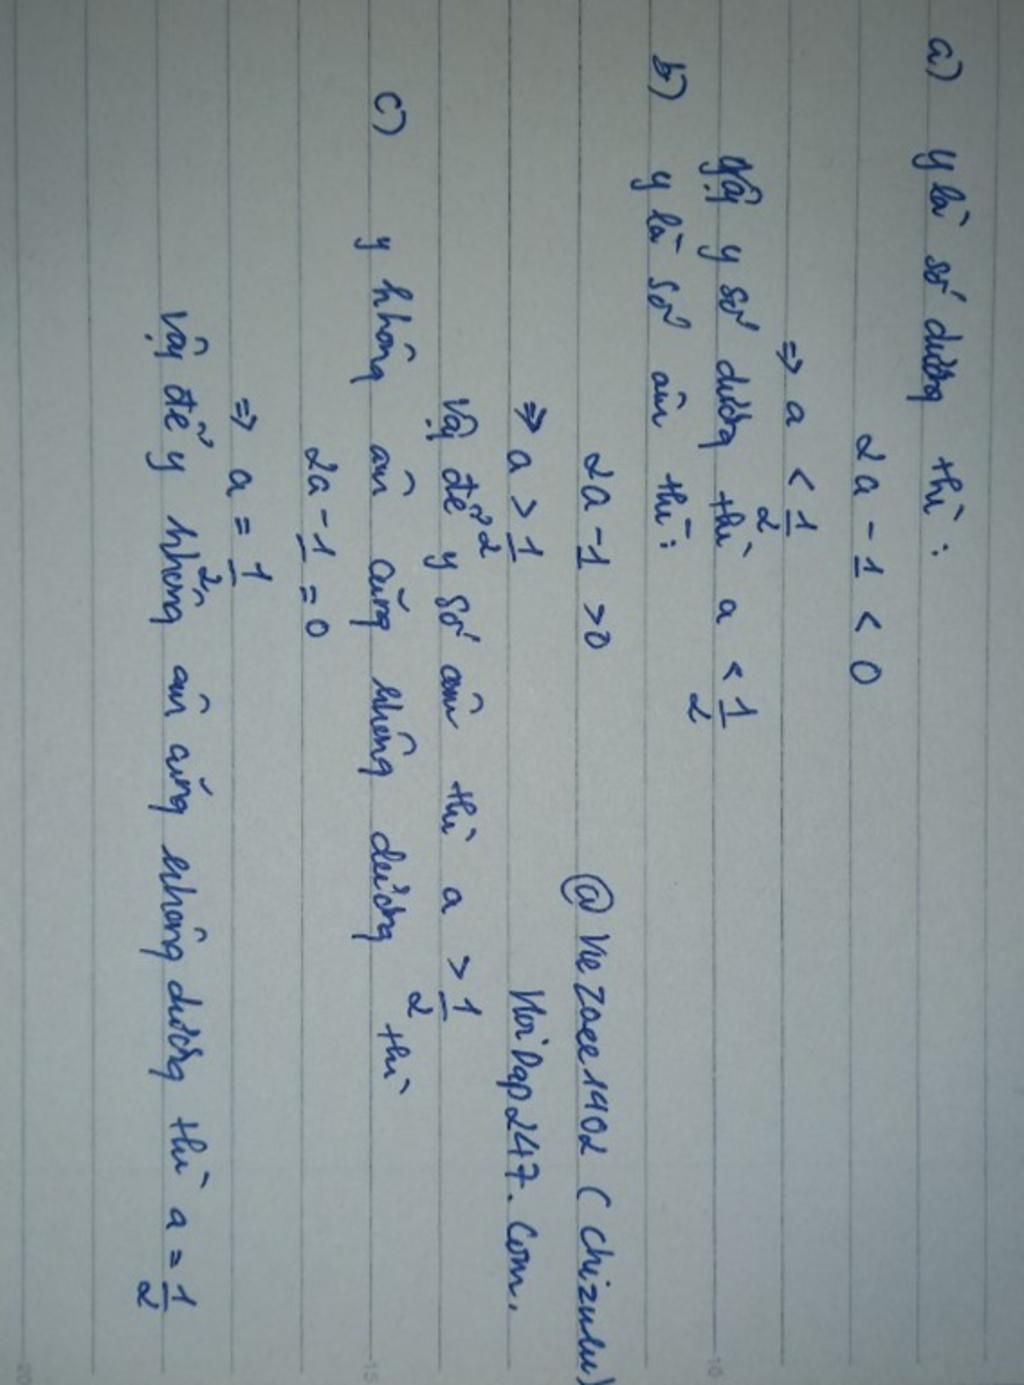 a) y là số dương thì:
2a - 1 < 0
⇒ a < 1/2
Vậy y số dương thì a < 1/2
b) y là số âm thì:
2a - 1 > 0 @KieZaee1902 (Chizulu)
⇒ a > 1/2 HoiDap247.Com.
Vậy để y số âm thì a > 1/2
c) y không âm cũng không dương thì
2a - 1 = 0
⇒ a = 1/2
Vậy để y không âm cũng không dương thì a = 1/2